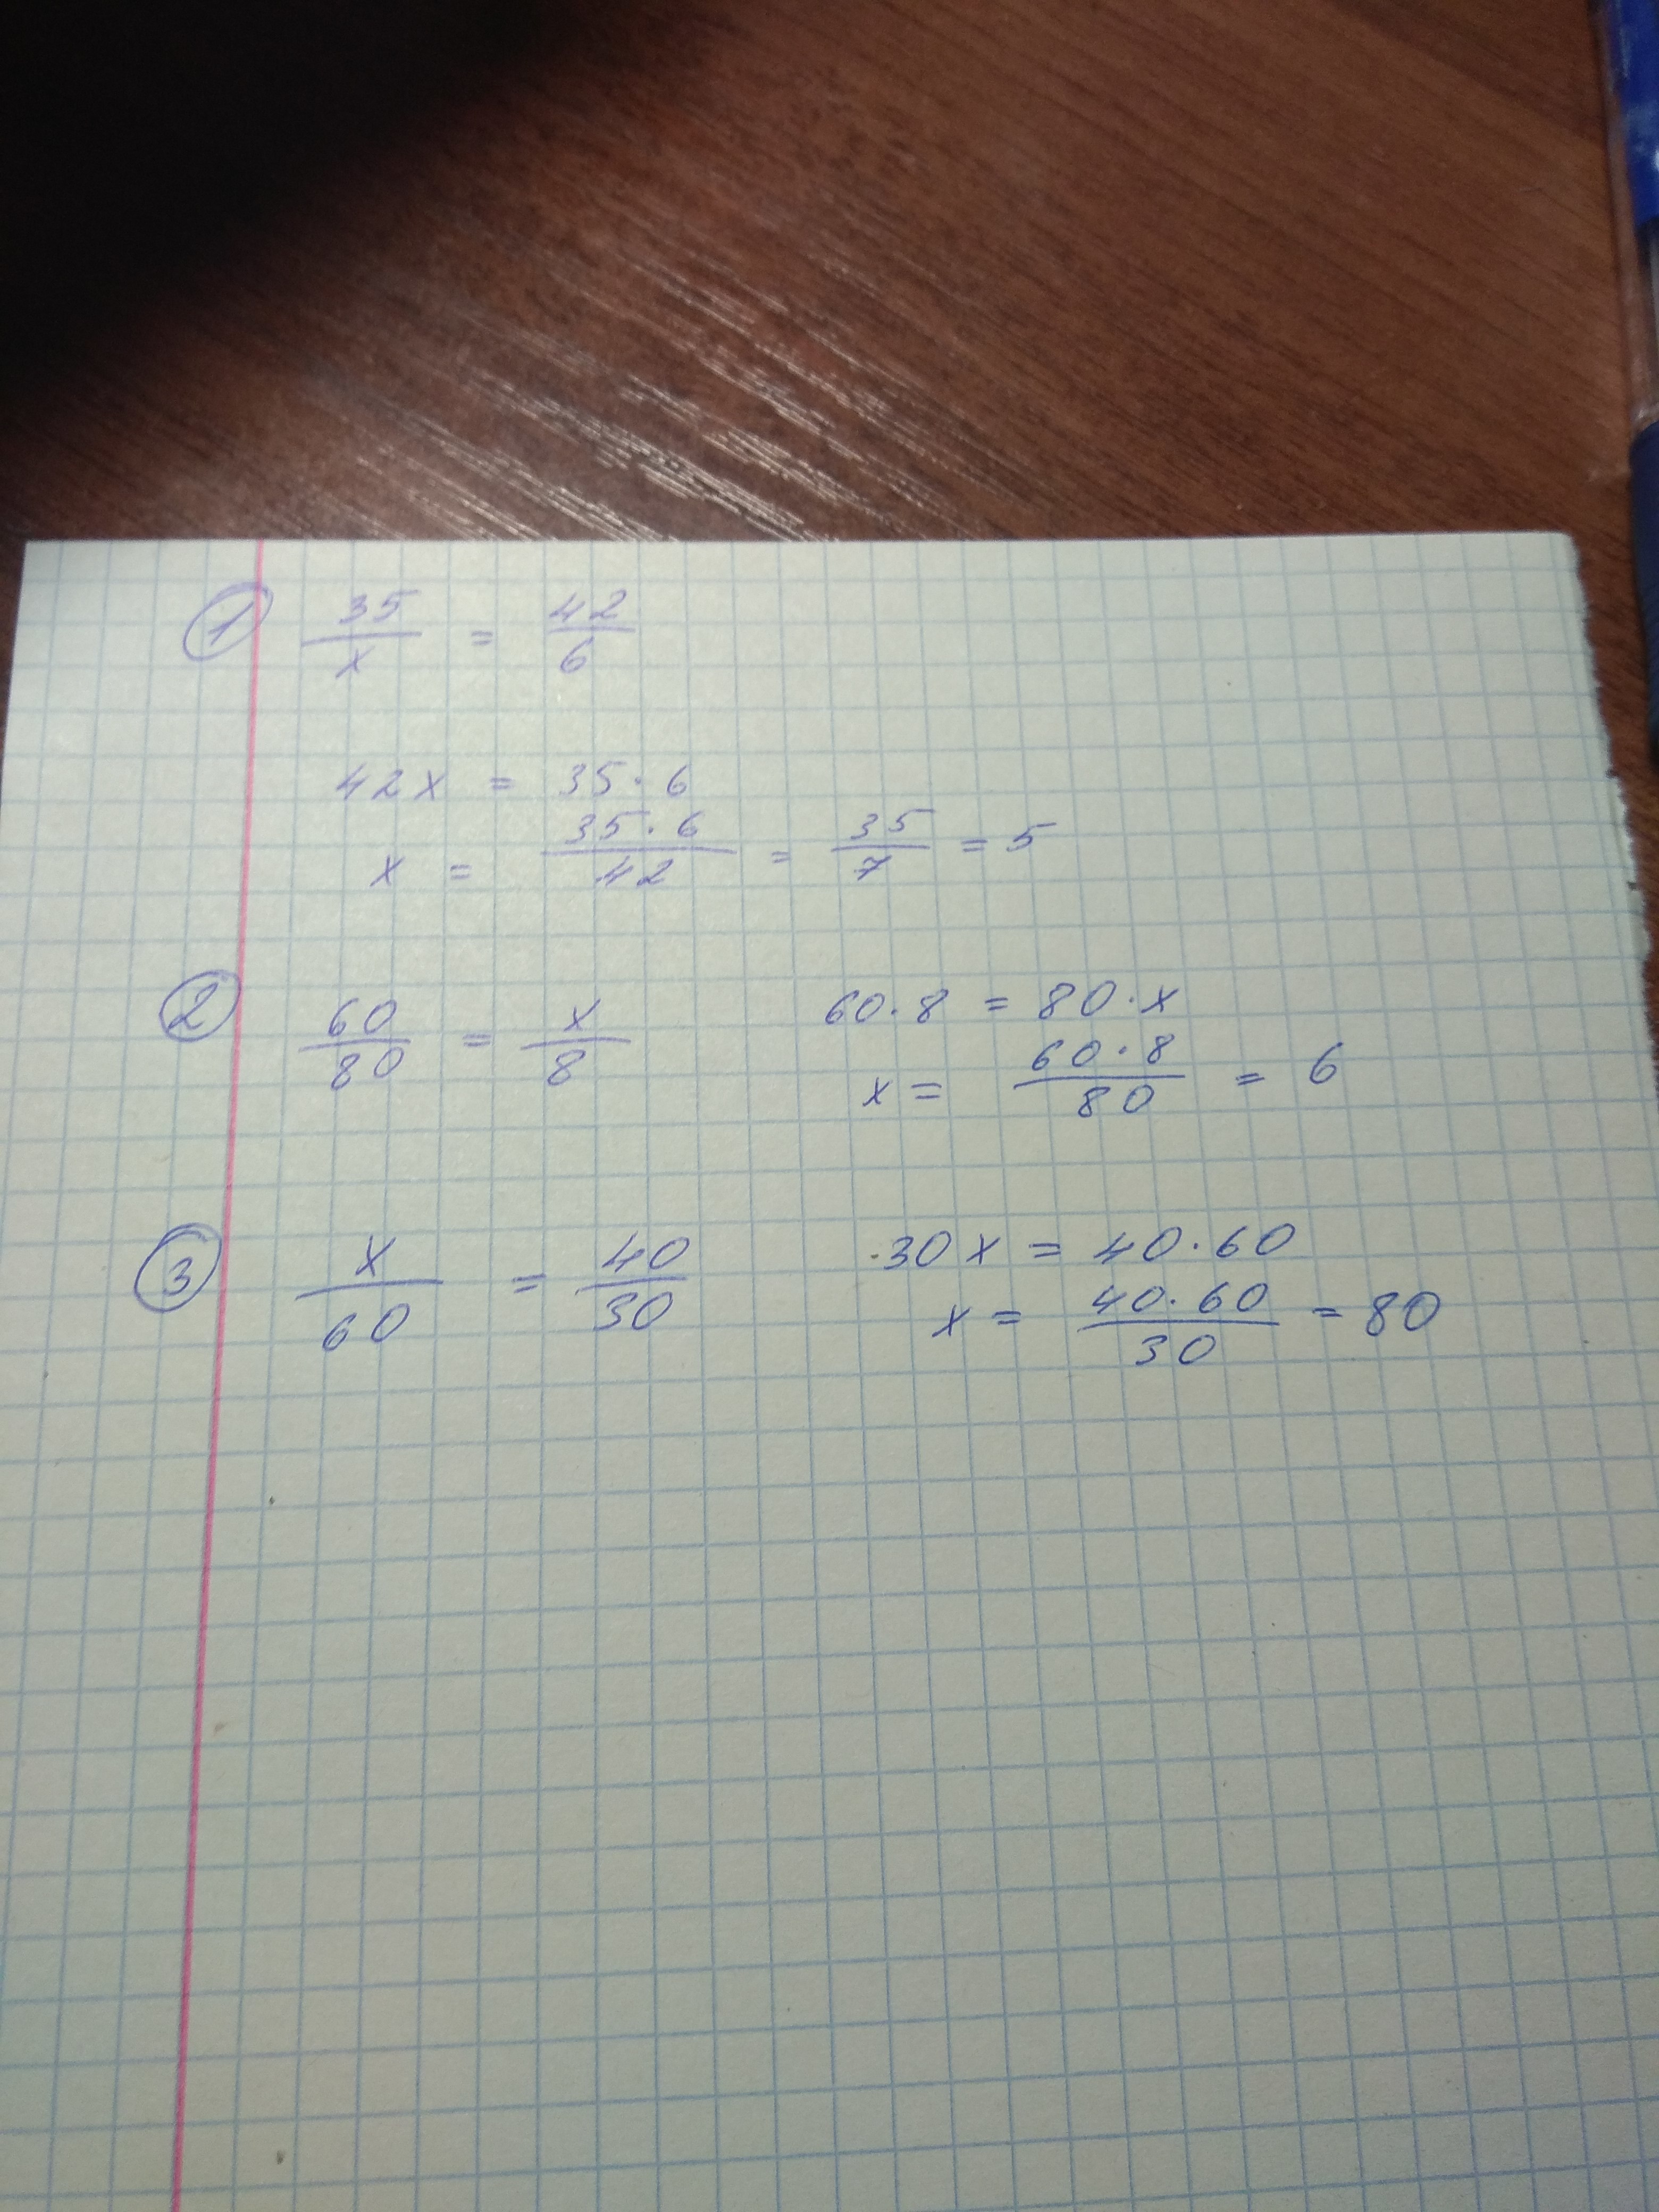 1 35/x = 42/6
42x = 35·6
x = 35·6/42 = 35/7 = 5
2 60/80 = x/8
60·8 = 80·x
x = 60·8/80 = 6
3 x/60 = 40/30
·30x = 40·60
x = 40·60/30 = 80